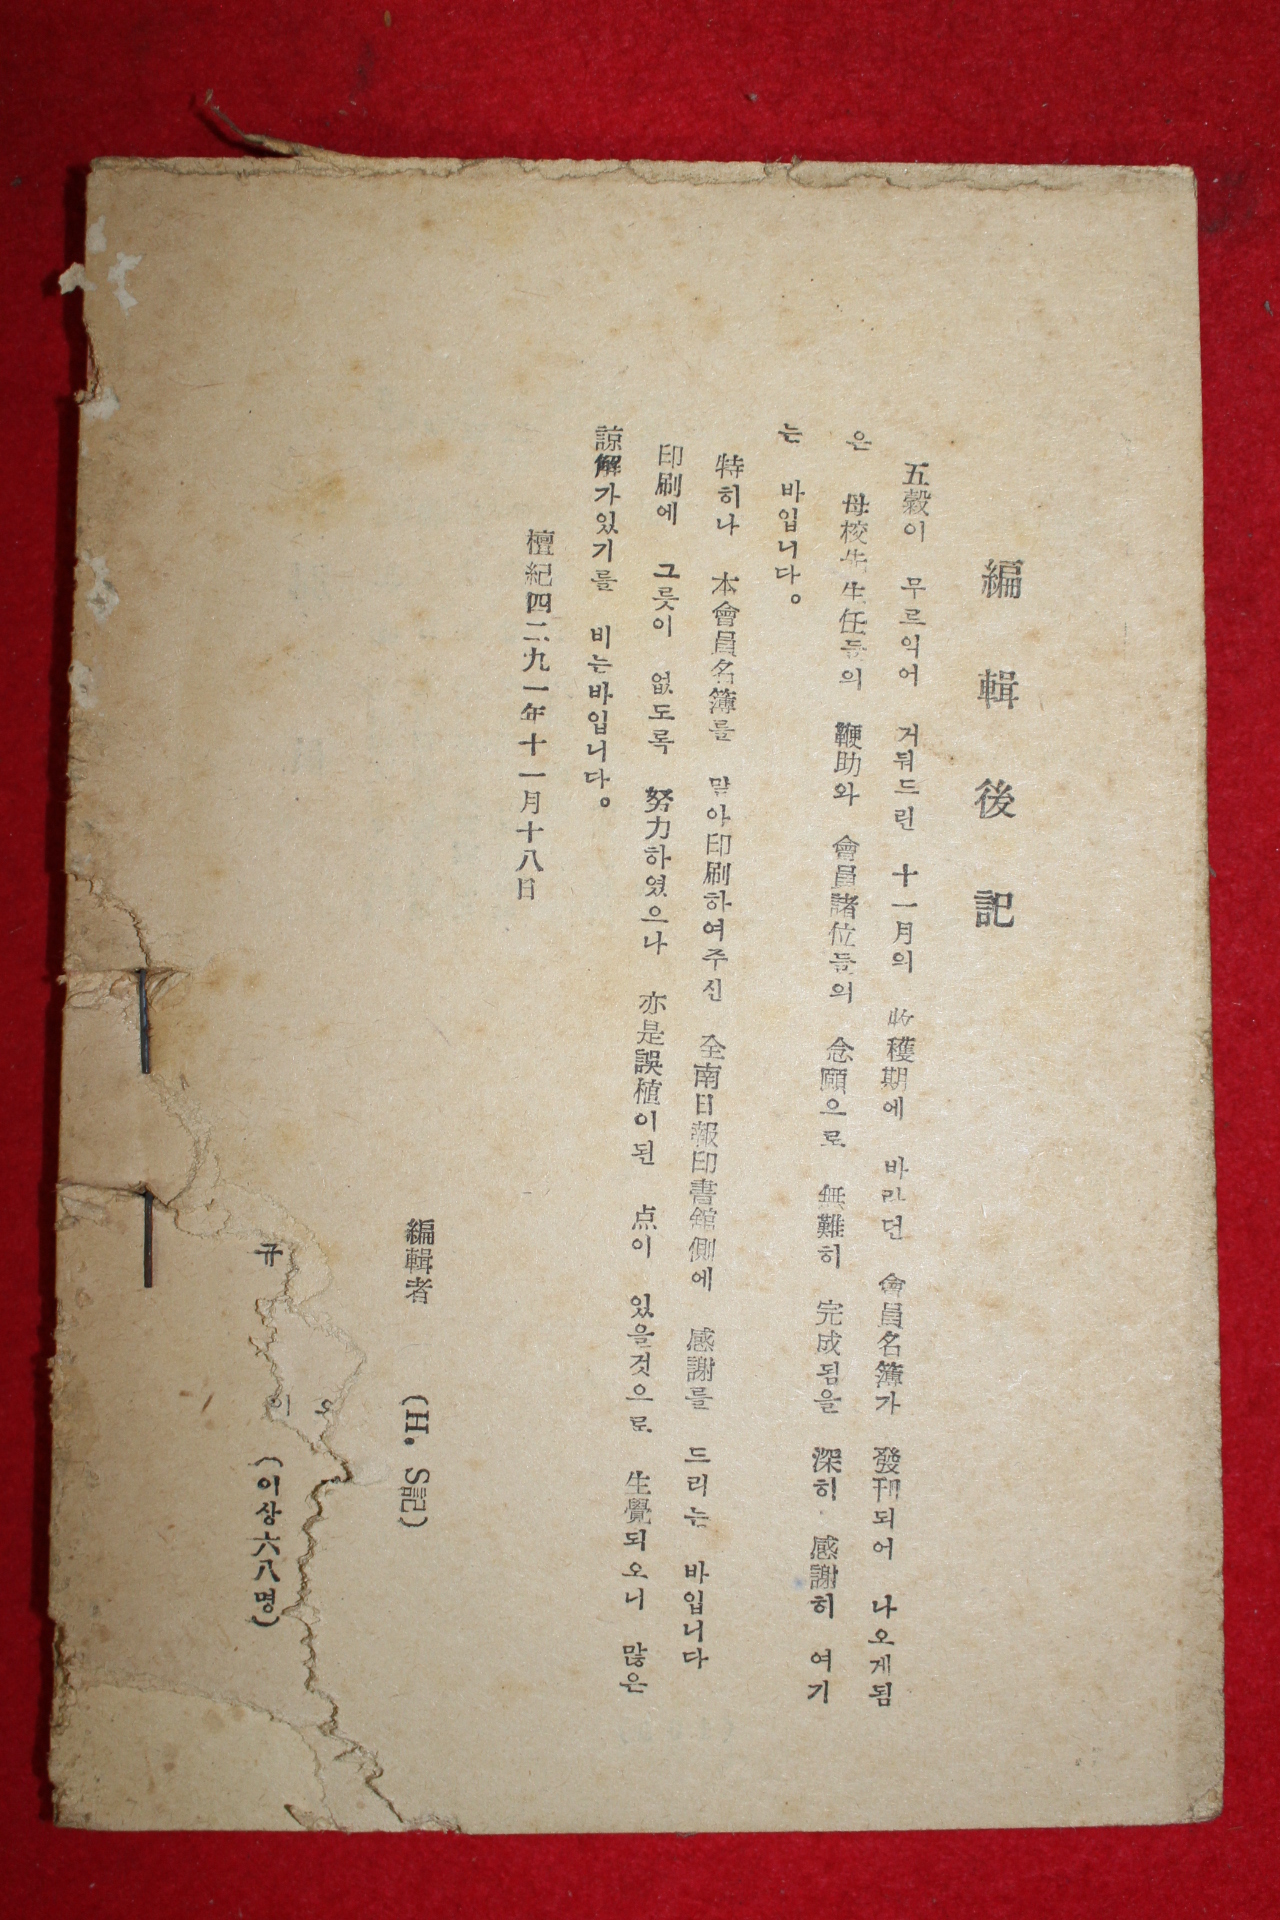 編輯後記
五穀이 무르익어 거둬드린 十一月의 收穫期에 바라던 會員名簿가 發刊되어 나오게됨
은 母校先生任들의 鞭助와 會員諸位들의 念願으로 無難히 完成됨을 深히 感謝히 여기
는 바입니다。
特히나 本會員名簿를 맡아印刷하여주신 全南日報印書舘側에 感謝를 드리는 바입니다
印刷에 그릇이 없도록 努力하였으나 亦是誤植이된 点이 있을것으로 生覺되오니 많은
諒解가있기를 비는바입니다。
檀紀四二九一年十一月十八日
編輯者 (H. S記)
오
규 이 (이상六八명)